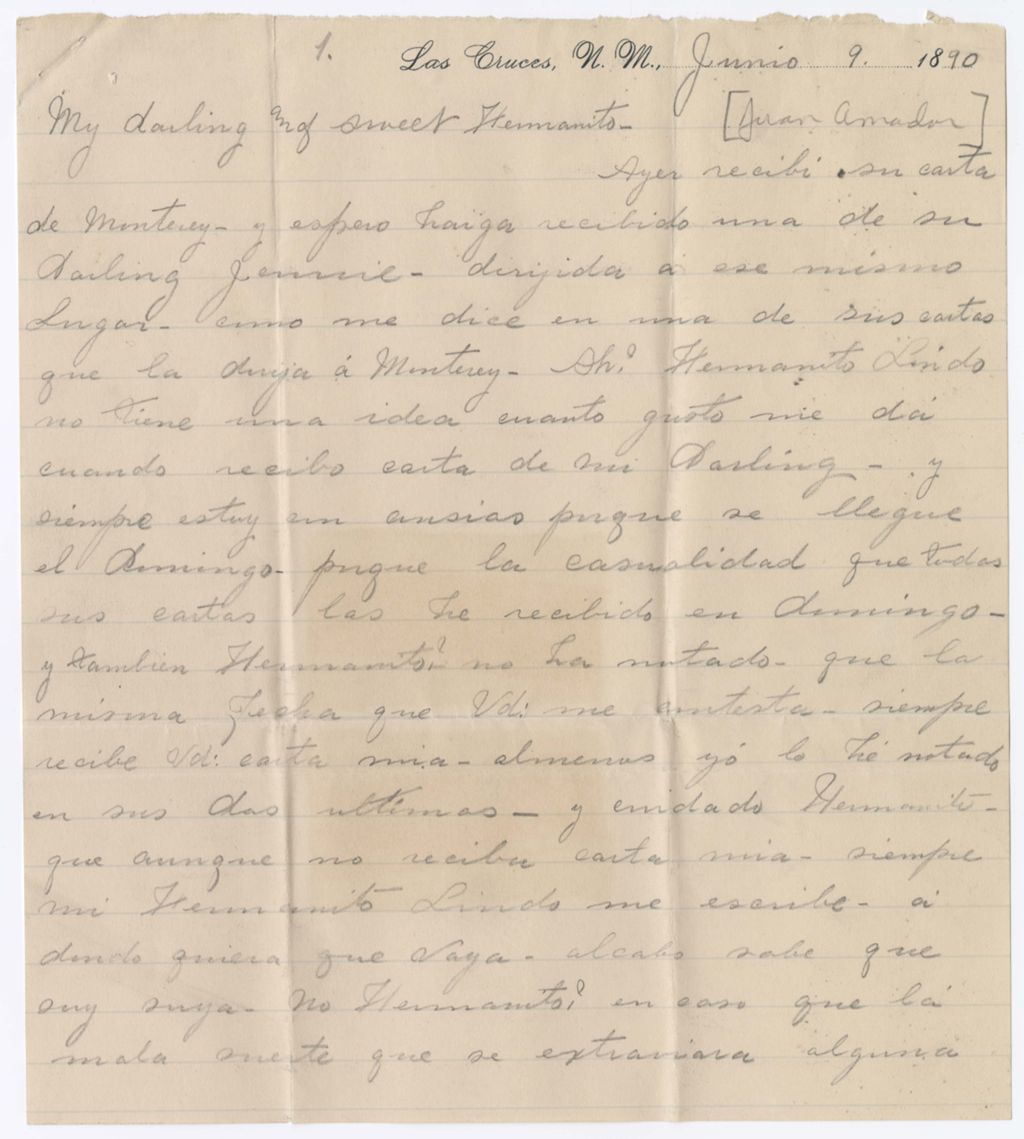 1. Las Cruces, N. M., Junio 9. 1890
My darling and sweet Hermanito- [Juan Amador]
Ayer recibi su carta
de Monterey- y espero haiga recibido una de su
Darling Jennie- dirijida a ese mismo
Lugar- como me dice en una de sus cartas
que la dirija á Monterey- Ah! Hermanito Lindo
no tiene una idea cuanto gusto me dá
cuando recibo carta de mi Darling- y
siempre estoy en ansias porque se llegue
el Domingo- porque la casualidad que todas
sus cartas las he recibido en domingo-
y tambien Hermanito? no ha notado- que la
misma Fecha que Vd: me contesta- siempre
recibe Vd: carta mia- almenos yó lo hé notado
en sus dos ultimas- y cuidado Hermanito-
que aunque no reciba carta mia- siempre
mi Hermanito Lindo me escribe- á
dondo quiera que Vaya- alcabo sabe que
soy suya- no Hermanito? en caso que la
mala suerte que se extraviara alguna